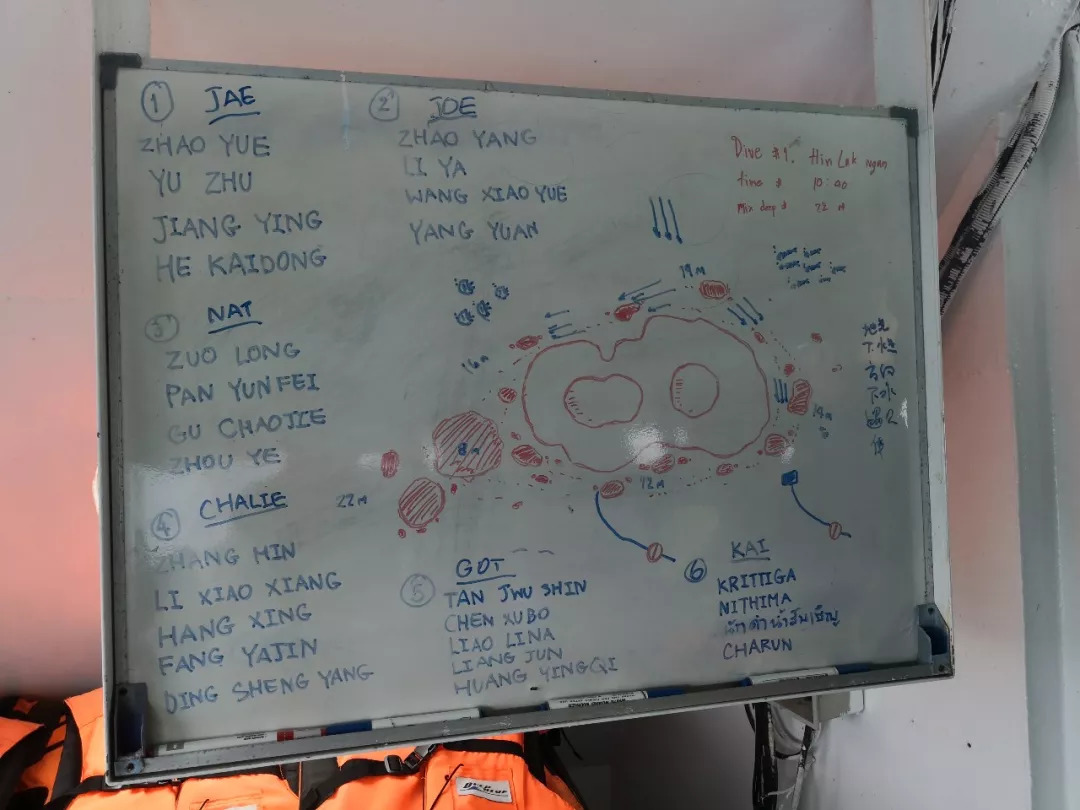 1 JAE
ZHAO YUE
YU ZHU
JIANG YING
HE KAIDONG
2 JOE
ZHAO YANG
LI YA
WANG XIAO YUE
YANG YUAN
Dive #1. Hin Luk ngan
time 10:00
22 M
3 NAT
ZUO LONG
PAN YUNFEI
GU CHAOJIE
ZHOU YE
19 M
16 m
8 m
12 m
22 M
4 CHALIE
ZHANG MIN
LI XIAO XIANG
HANG XING
FANG YAJIN
DING SHENG YANG
5 GOT
TAN JWU SHIN
CHEN XUBO
LIAO LINA
LIANG JUN
HUANG YINGQI
6 KAI
KRITTIGA
NITHIMA
CHARUN